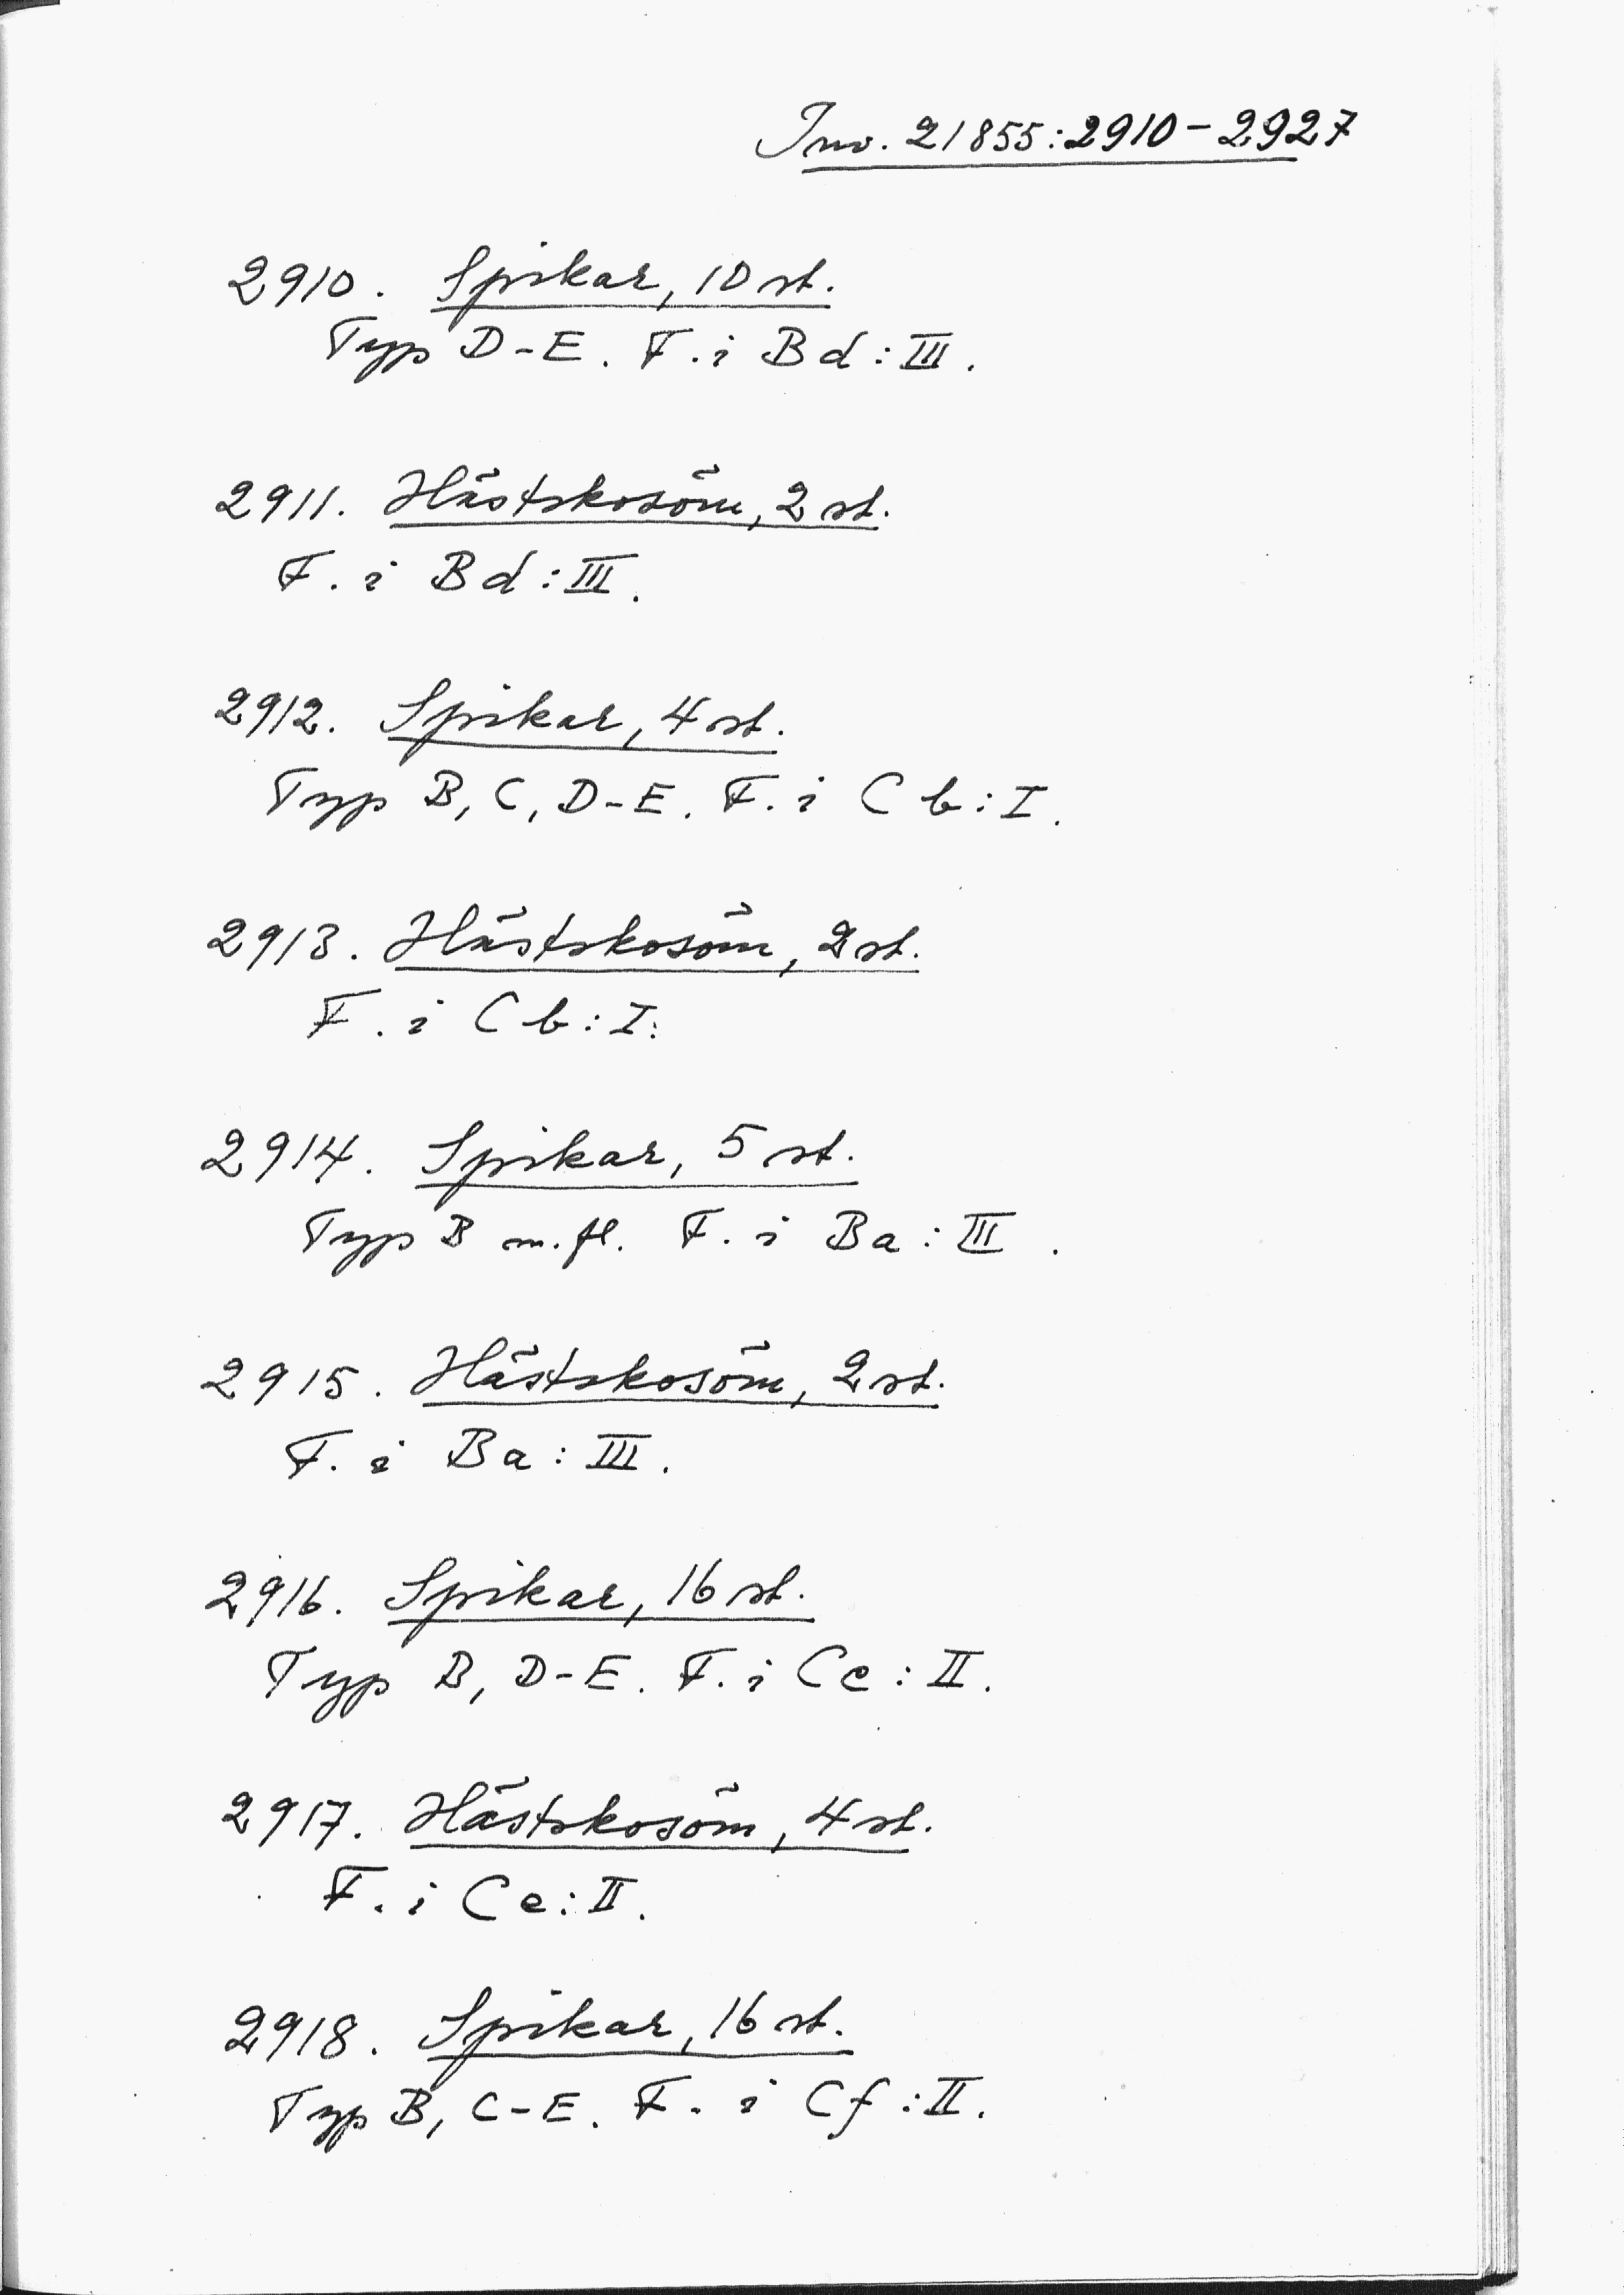 Inv. 21855:2910-2927
2910. Spikar, 10 st.
Typ D-E. F. i Bd:III.
2911. Hästskosöm, 2 st.
F. i Bd:III.
2912. Spikar, 4 st.
Typ B, C, D-E. F. i Cb:I.
2913. Hästskosöm, 2 st.
F. i Cb:I.
2914. Spikar, 5 st.
Typ B m.fl. F. i Ba:III.
2915. Hästskosöm, 2 st.
F. i Ba:III.
2916. Spikar, 16 st.
Typ B, D-E. F. i Ce:II.
2917. Hästskosöm, 4 st.
F. i Ce:II.
2918. Spikar, 16 st.
Typ B, C-E. F. i Cf:II.